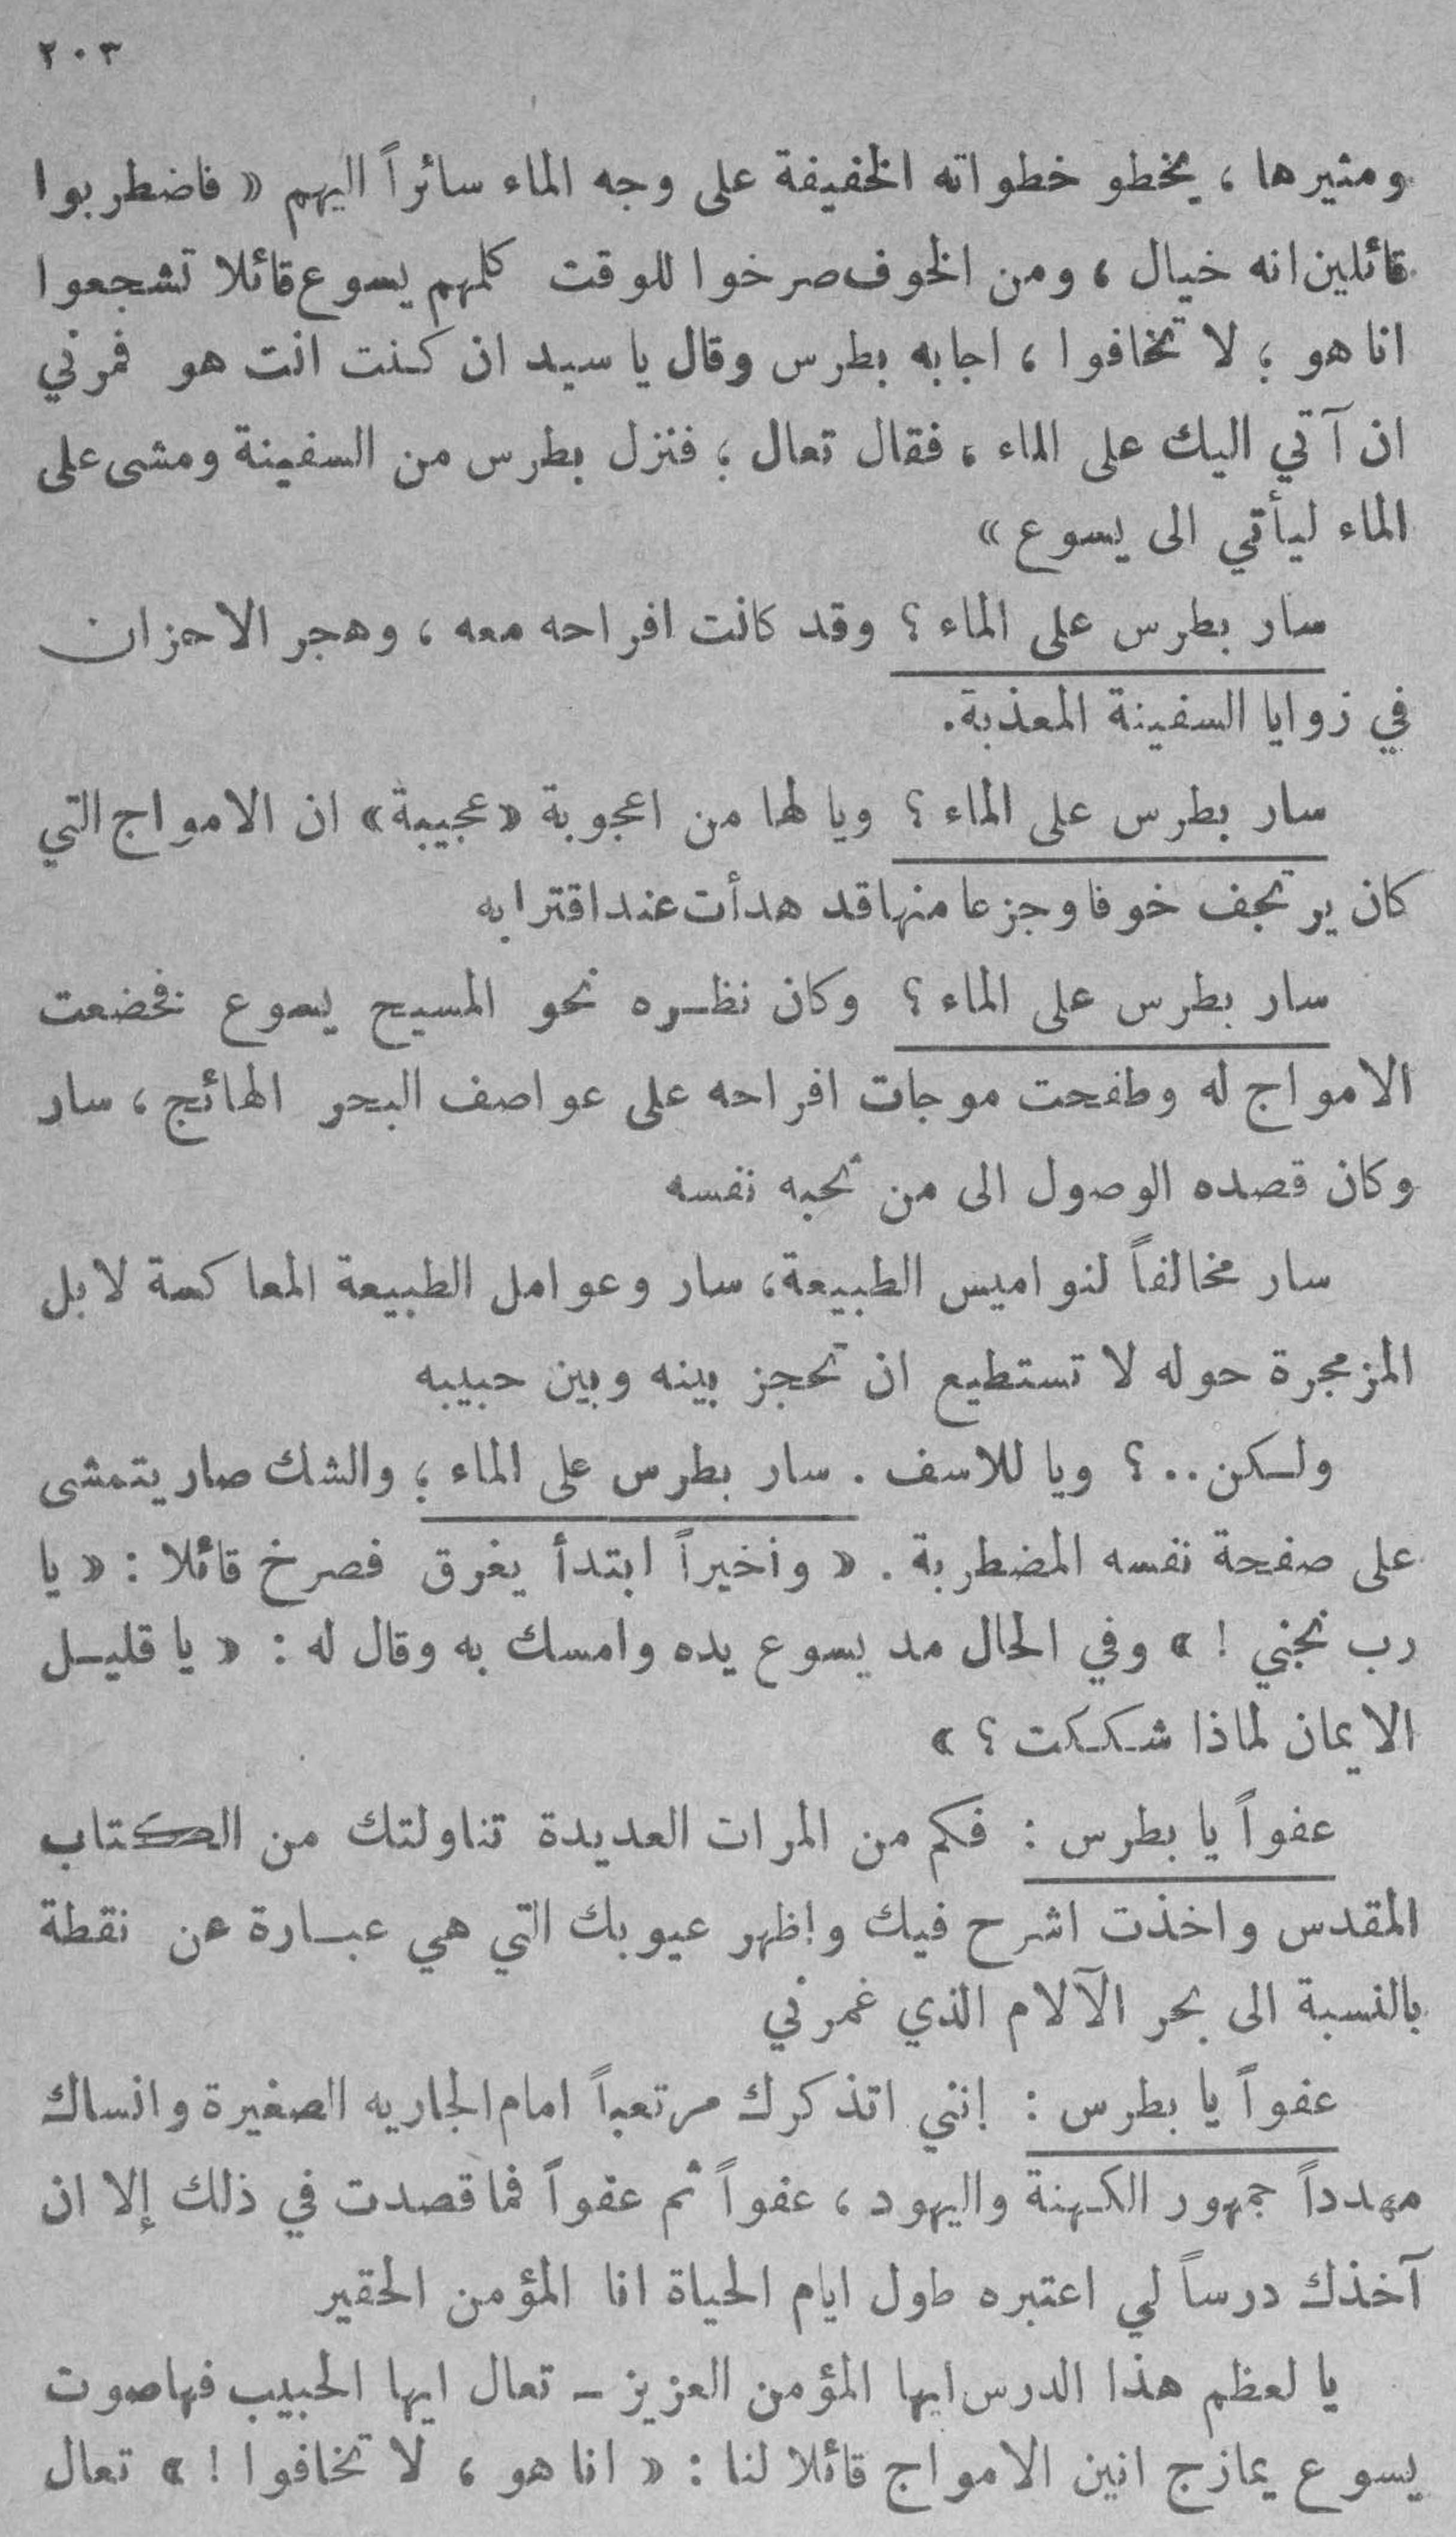 ٢٠٣
ومثيرها ، يخطو خطواته الخفيفة على وجه الماء سائراً اليهم « فاضطربوا
قائلين انه خيال ، ومن الخوف صرخوا للوقت كلمهم يسوع قائلا تشجعوا
انا هو ؛ لا تخافوا ، اجابه بطرس وقال يا سيد ان كنت انت هو فمرني
ان آتي اليك على الماء ، فقال تعال ؛ فنزل بطرس من السفينة ومشى على
الماء ليأتي الى يسوع »
سار بطرس على الماء ؟ وقد كانت افراحه معه ، وهجر الاحزان
في زوايا السفينة المعذبة.
سار بطرس على الماء ؟ ويا لها من اعجوبة «عجيبة» ان الامواج التي
كان يرتجف خوفا وجزعا منها قد هدأت عند اقترابه
سار بطرس على الماء ؟ وكان نظره نحو المسيح يسوع فخضعت
الامواج له وطفحت موجات افراحه على عواصف البحر الهائج ، سار
وكان قصده الوصول الى من تحبه نفسه
سار مخالفاً لنواميس الطبيعة ، سار وعوامل الطبيعة المعاكسة لا بل
المزمجرة حوله لا تستطيع ان تحجز بينه وبين حبيبه
ولكن..؟ ويا للاسف . سار بطرس على الماء ؛ والشك صار يتمشى
على صفحة نفسه المضطربة . « واخيراً ابتدأ يغرق فصرخ قائلا : « يا
رب نجني ! » وفي الحال مد يسوع يده وامسك به وقال له : « يا قليل
الايمان لماذا شككت ؟ »
عفواً يا بطرس : فكم من المرات العديدة تناولتك من الكتاب
المقدس واخذت اشرح فيك واظهر عيوبك التي هي عبارة عن نقطة
بالنسبة الى بحر الآلام الذي غمرني
عفواً يا بطرس : إنني اتذكرك مرتعباً امام الجاريه الصغيرة وانساك
مهدداً جمهور الكهنة واليهود ، عفواً ثم عفواً فما قصدت في ذلك إلا ان
آخذك درساً لي اعتبره طول ايام الحياة انا المؤمن الحقير
يا لعظم هذا الدرس ايها المؤمن العزيز – تعال ايها الحبيب فها صوت
يسوع يمازج انين الامواج قائلا لنا : « انا هو ، لا تخافوا ! » تعال